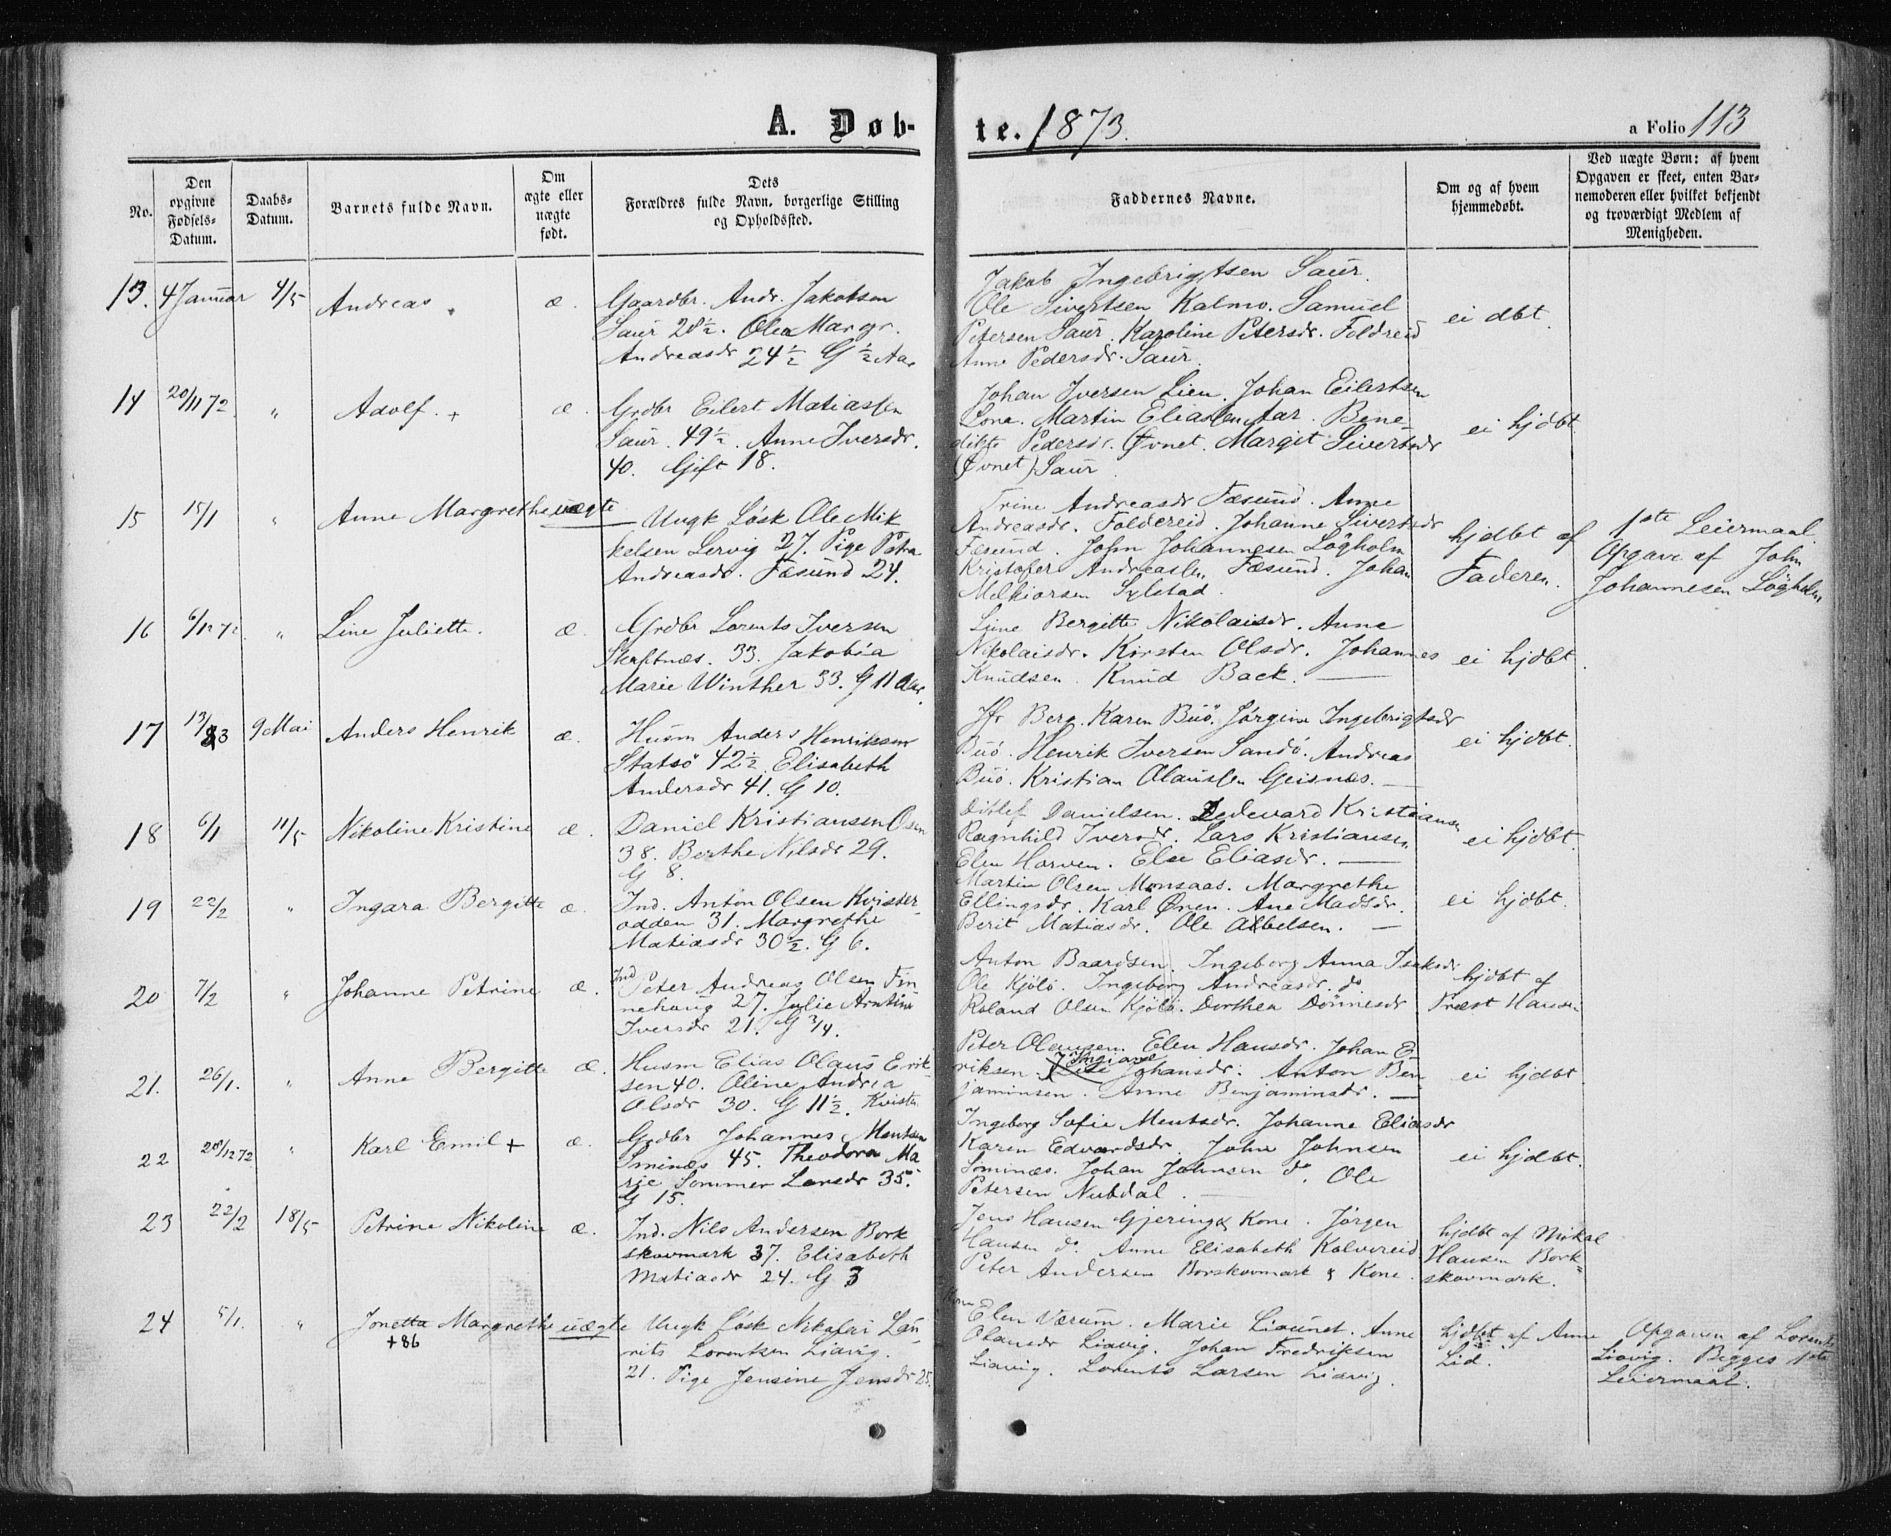 A. Døb-
te. 1873.
a Folio 113
No.
Den opgivne Fødsels-Datum.
Daabs-Datum.
Barnets fulde Navn.
Om ægte eller uægte født.
Dets Forældres fulde Navn, borgerlige Stilling og Opholdssted.
Faddernes Navne.
Om og af hvem hjemmedøbt.
Ved uægte Børn: af hvem Opgaven er skeet, enten Bar-nemoderen eller hvilket bekjendt og troværdigt Medlem af Menigheden.
13. 4 Januar 4/5 Andreas. æ.
Gaardbr. Andr. Jakobsen
Saur 28½. Olea Margr.
Andreasdr 24½ G ½ Aar
Jakob Ingebrigtsen Saur.
Ole Sivertsen Kalmo. Samuel
Petersen Saur. Karoline Petersdr. Foldreid
Anne Pedersdr. Saur.
ei dbt.
14 20/11 72. " Adolf. + æ.
Grdbr Eilert Matiassen
Saur. 49½. Anne Iversdr.
40. Gift 18.
Johan Iversen Lien. Johan Eilertsen
Lona. Martin Eliassen Aar. Bene-
dikte Pedersdr. Øvnet. Margit Sivertsdr
(Øvnet) Saur
ei hjdbt
15 15/1 " Anne Margrethe uægte
Ungk Løsk Ole Mik
kelsen Lervig 27. Pige Petra
Andreasdr. Fæsund 24.
Trine Andreasdr Fæsund. Anne
Andreasdr. Foldereid. Johanne Sivertsdr
Fæsund. John Johannesen Løgholm
Kristofer Andreassen Fæsund. Johan
Melkiorsen Sylstad.
hjdbt af
Faderen.
1ste Leiermaal.
Opgave af John
Johannesen Løgholm
16 6/12 72. " Line Juliette. æ.
Grdbr Lorents Iversen
Skrftnæs. 33. Jakobia
Marie Winther 33. G 11 Aar.
Line Bergitte Nikolaisdr. Anne
Nikolaisdr. Kirsten Olsdr. Johannes
Knudsen. Knud Back.
ei hjdbt.
17 13/3 9 Mai Anders Henrik æ.
Husm Anders Henriksen
Statsø 42½. Elisabeth
Andersdr 41. G 10.
Jfr Berg. Karen Buö. Jørgine Ingebrigtsdr
Buö. Henrik Iversen Sandö. Andreas
Buö. Kristian Olaussen Geisnes.
ei hjdbt.
18 6/1 11/5 Nikoline Kristine æ.
Daniel Kristiansen Osen
38. Berthe Nilsdr 29.
G 8.
Ditlef Danielsen. Edevard Kristiansen
Ragnhild Iversdr. Lars Kristiansen
Elen Harven. Else Eliasdr.
ei hjdbt.
19 22/2 " Ingara Bergitte æ.
Ind. Anton Olsen Kvister-
odden 31. Margrethe
Matiasdr 30½. G 6.
Martin Olsen Monsaas. Margrethe
Ellingsdr. Karl Ønen. Ane Madsdr.
Berit Matiasdr. Ole Abelsen.
ei hjdbt.
20 7/2 " Johanne Petrine æ.
Ind Peter Andreas Olsen Fin
nehaug 27. Julie Arntine
Iversdr 21. G ¾.
Anton Baardsen. Ingeborg Anna Isaksdr
Ole Kjölö. Ingeborg Andreasdr. do
Roland Olsen Kjölö. Dorthea Dönnesdr
hjdbt af
Præst Hansen
21. 26/1. " Anne Bergitte æ.
Husm Elias Olaus Erik-
sen 40. Oline Andrea
Olsdr 30. G 11½. Kvist
Peter Olausen. Elen Hansdr. Johan E-
riksen. Ingiane Johansdr. Anton Ben
jaminsen. Anne Benjaminsdr.
ei hjdbt
22 28/12 72 " Karl Emil + æ.
Grdbr Johannes Mentsen
Sminæs 45. Theodora Ma
rie Sommer Larsdr 35.
G 15.
Ingeborg Sofie Mentsdr. Johanne Eliasdr
Karen Edvardsdr. John Johnsen
Sominæs. Johan Johnsen do. Ole
Petersen Nubdal.
ei hjdbt.
23 22/2 18/5 Petrine Nikoline æ.
Ind. Nils Andersen Bork
skovmark 37. Elisabeth
Matiasdr 24. G 3
Jens Hansen Gjering & Kone. Jörgen
Hansen do. Anne Elisabeth Kalvereid.
Peter Andersen Borskovmark & Kone.
hjdbt af Nikal
Hansen Bork-
skovmark.
24 5/1. " Jonetta Margrethe uægte
+86
Ungk Løsk Nikolai Lau
rits Lorentsen Liavig.
21. Pige Jensine Jensdr 25.
Kone Elen Værum. Marie Liaunet. Anne
Olausdr Liavig. Johan Fredriksen
Liavig. Lorents Larsen Liavig.
hjdbt af Anne
Lid.
Opgaven af Lorents
Liavig. Begges 1ste
Leiermaal.